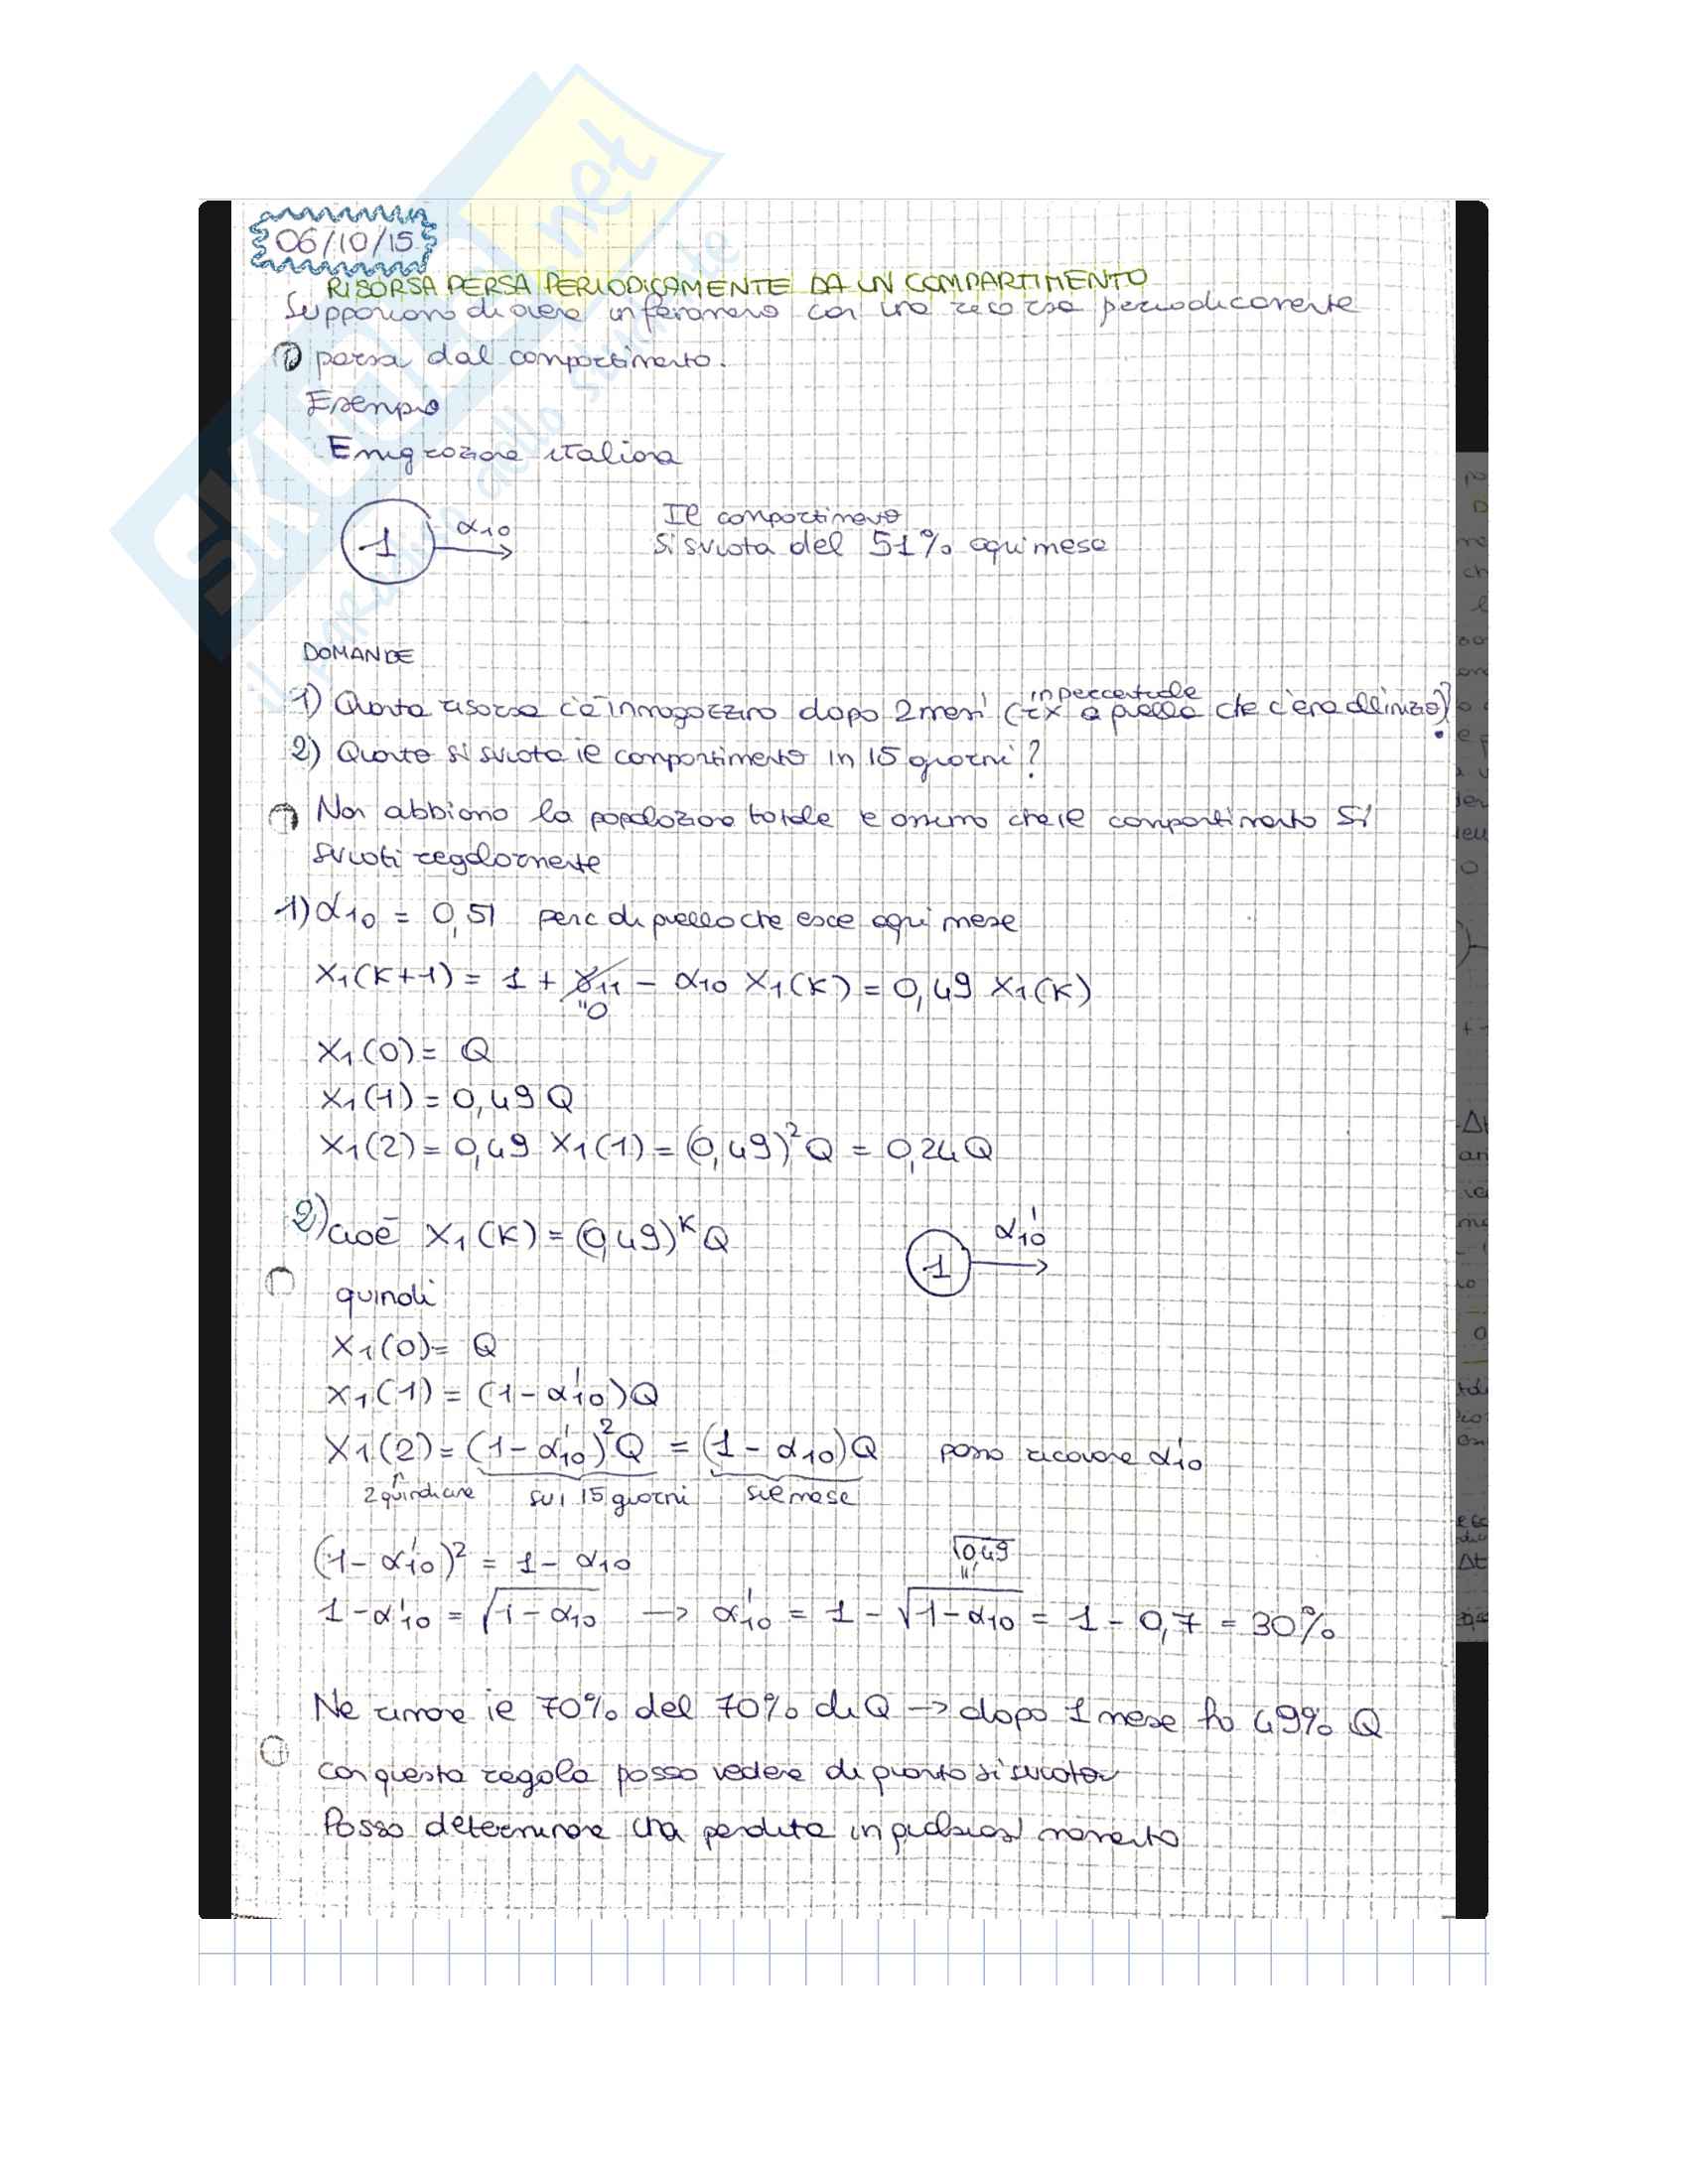 06/10/15
RISORSA PERSA PERIODICAMENTE DA UN COMPARTIMENTO
Supponiamo di avere un fenomeno con una risorsa periodicamente
persa dal compartimento.
Esempio
Emigrazione italiana
1 α10
Il compartimento
si svuota del 51% ogni mese
DOMANDE
in percentuale
1) Quanta risorsa c'è in magazzino dopo 2 mesi (rix a quella che c'era all'inizio)?
2) Quanto si svuota il compartimento in 15 giorni?
Non abbiamo la popolazione totale e che il compartimento si
svuoti regolarmente
1) α10 = 0,51 perc di quello che esce ogni mese
X1(K+1) = 1 + γ11 - α10 X1(K) = 0,49 X1(K)
"0
X1(0) = Q
X1(1) = 0,49 Q
X1(2) = 0,49 X1(1) = (0,49)² Q = 0,24 Q
2) cioè X1(K) = (0,49)ᴷ Q
1 α'10
quindi
X1(0) = Q
X1(1) = (1-α'10)Q
X1(2) = (1-α'10)² Q = (1-α10)Q posso ricavare α'10
2 quindicine sui 15 giorni sul mese
(1-α'10)² = 1-α10
√0,49
1-α'10 = √1-α10 → α'10 = 1-√1-α10 = 1-0,7 = 30%
Ne rimane il 70% del 70% di Q → dopo 1 mese ho 49% Q
con questa regola posso vedere di quanto si svuota
Posso determinare una perdita in qualsiasi momento
SKUOLA.net